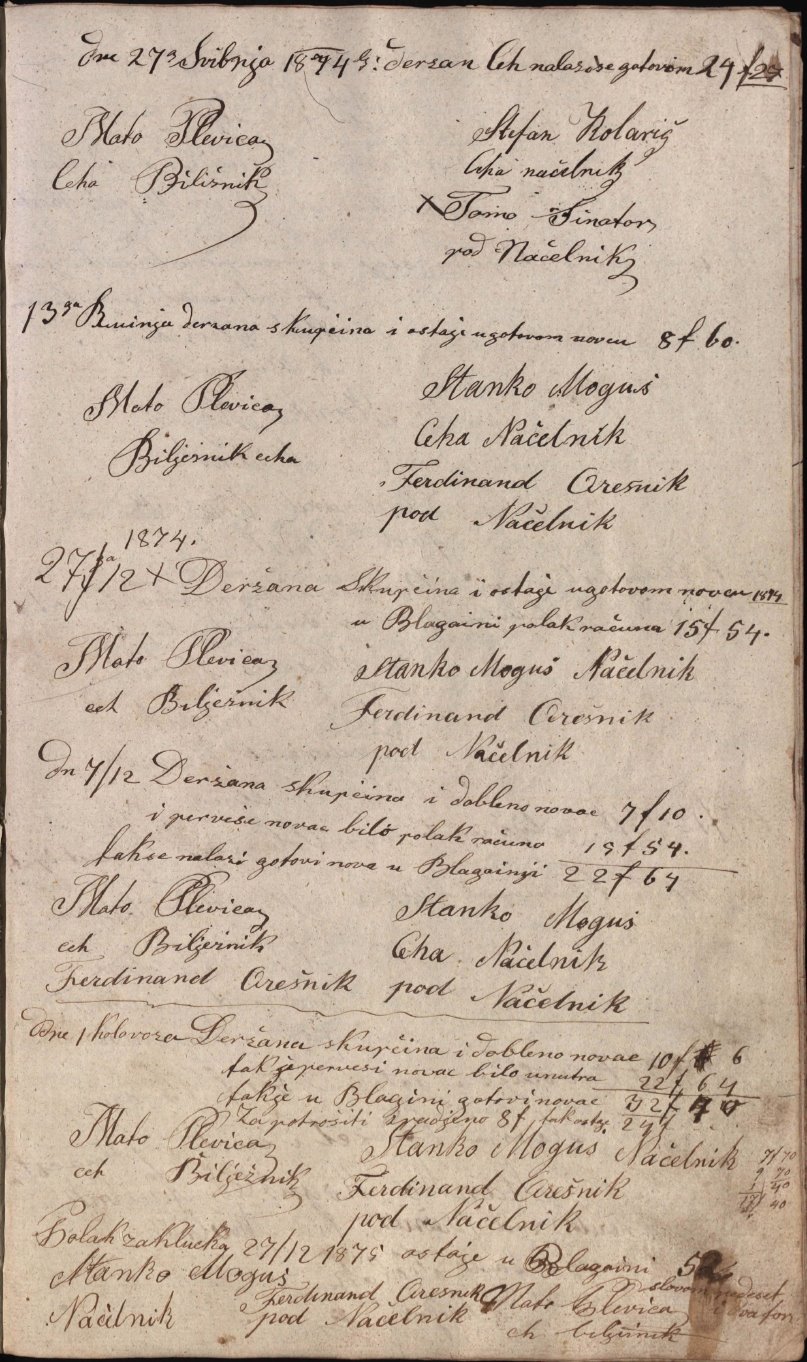 dne 27ga Svibnja 1874 deržan Ceh nalazise gotovim 24 f 27
Mato Plevica
Ceha Biližnik
Stefan Kolarič
Ceha načelnik
X Tomo Sinator
pod Načelnik
13ga deržana skupčina i ostaje ugotovom novcu 8 f 60.
Mato Plevica
Biljeznik ceha
Stanko Moguš
Ceha Načelnik
Ferdinand Orešnik
pod Načelnik
1874.
27/12 X Deržana Skupčina i ostaje ugotovom novcu 1874
u Blagaini polak računa 15 f 54.
Mato Plevica
ceh Biljeznik
Stanko Moguš Načelnik
Ferdinand Orešnik
pod Načelnik
Dn 7/12 Deržana skupčina i dobleno novac 7 f 10.
i perveše novac bilo polak računa 15 f 54.
takse nalazi gotovi nova u Blagainji 22 f 64
Mato Plevica
ceh Bilježnik
Ferdinand Orešnik
Stanko Moguš
Ceha Načelnik
pod Načelnik
Dne 1 kolovoza Deržana skupčina i dobleno novac 10 f 6
takje pervesi novac bilo unutra 22 f 64
takje u Blagini gotovi novac 32 f 70
Za potrošiti 8 f, tak 24 f
Mato Plevica
ceh Bilježnik
Stanko Moguš Načelnik
Ferdinand Orešnik
pod Načelnik
7 f 70
Polak zaklučka 27/12 1875 ostaje u Blagaini 52
slovom pedeset
i dva for
Stanko Moguš
Načelnik
Ferdinand Oresnik
pod Načelnik
Mato Plevica
ch